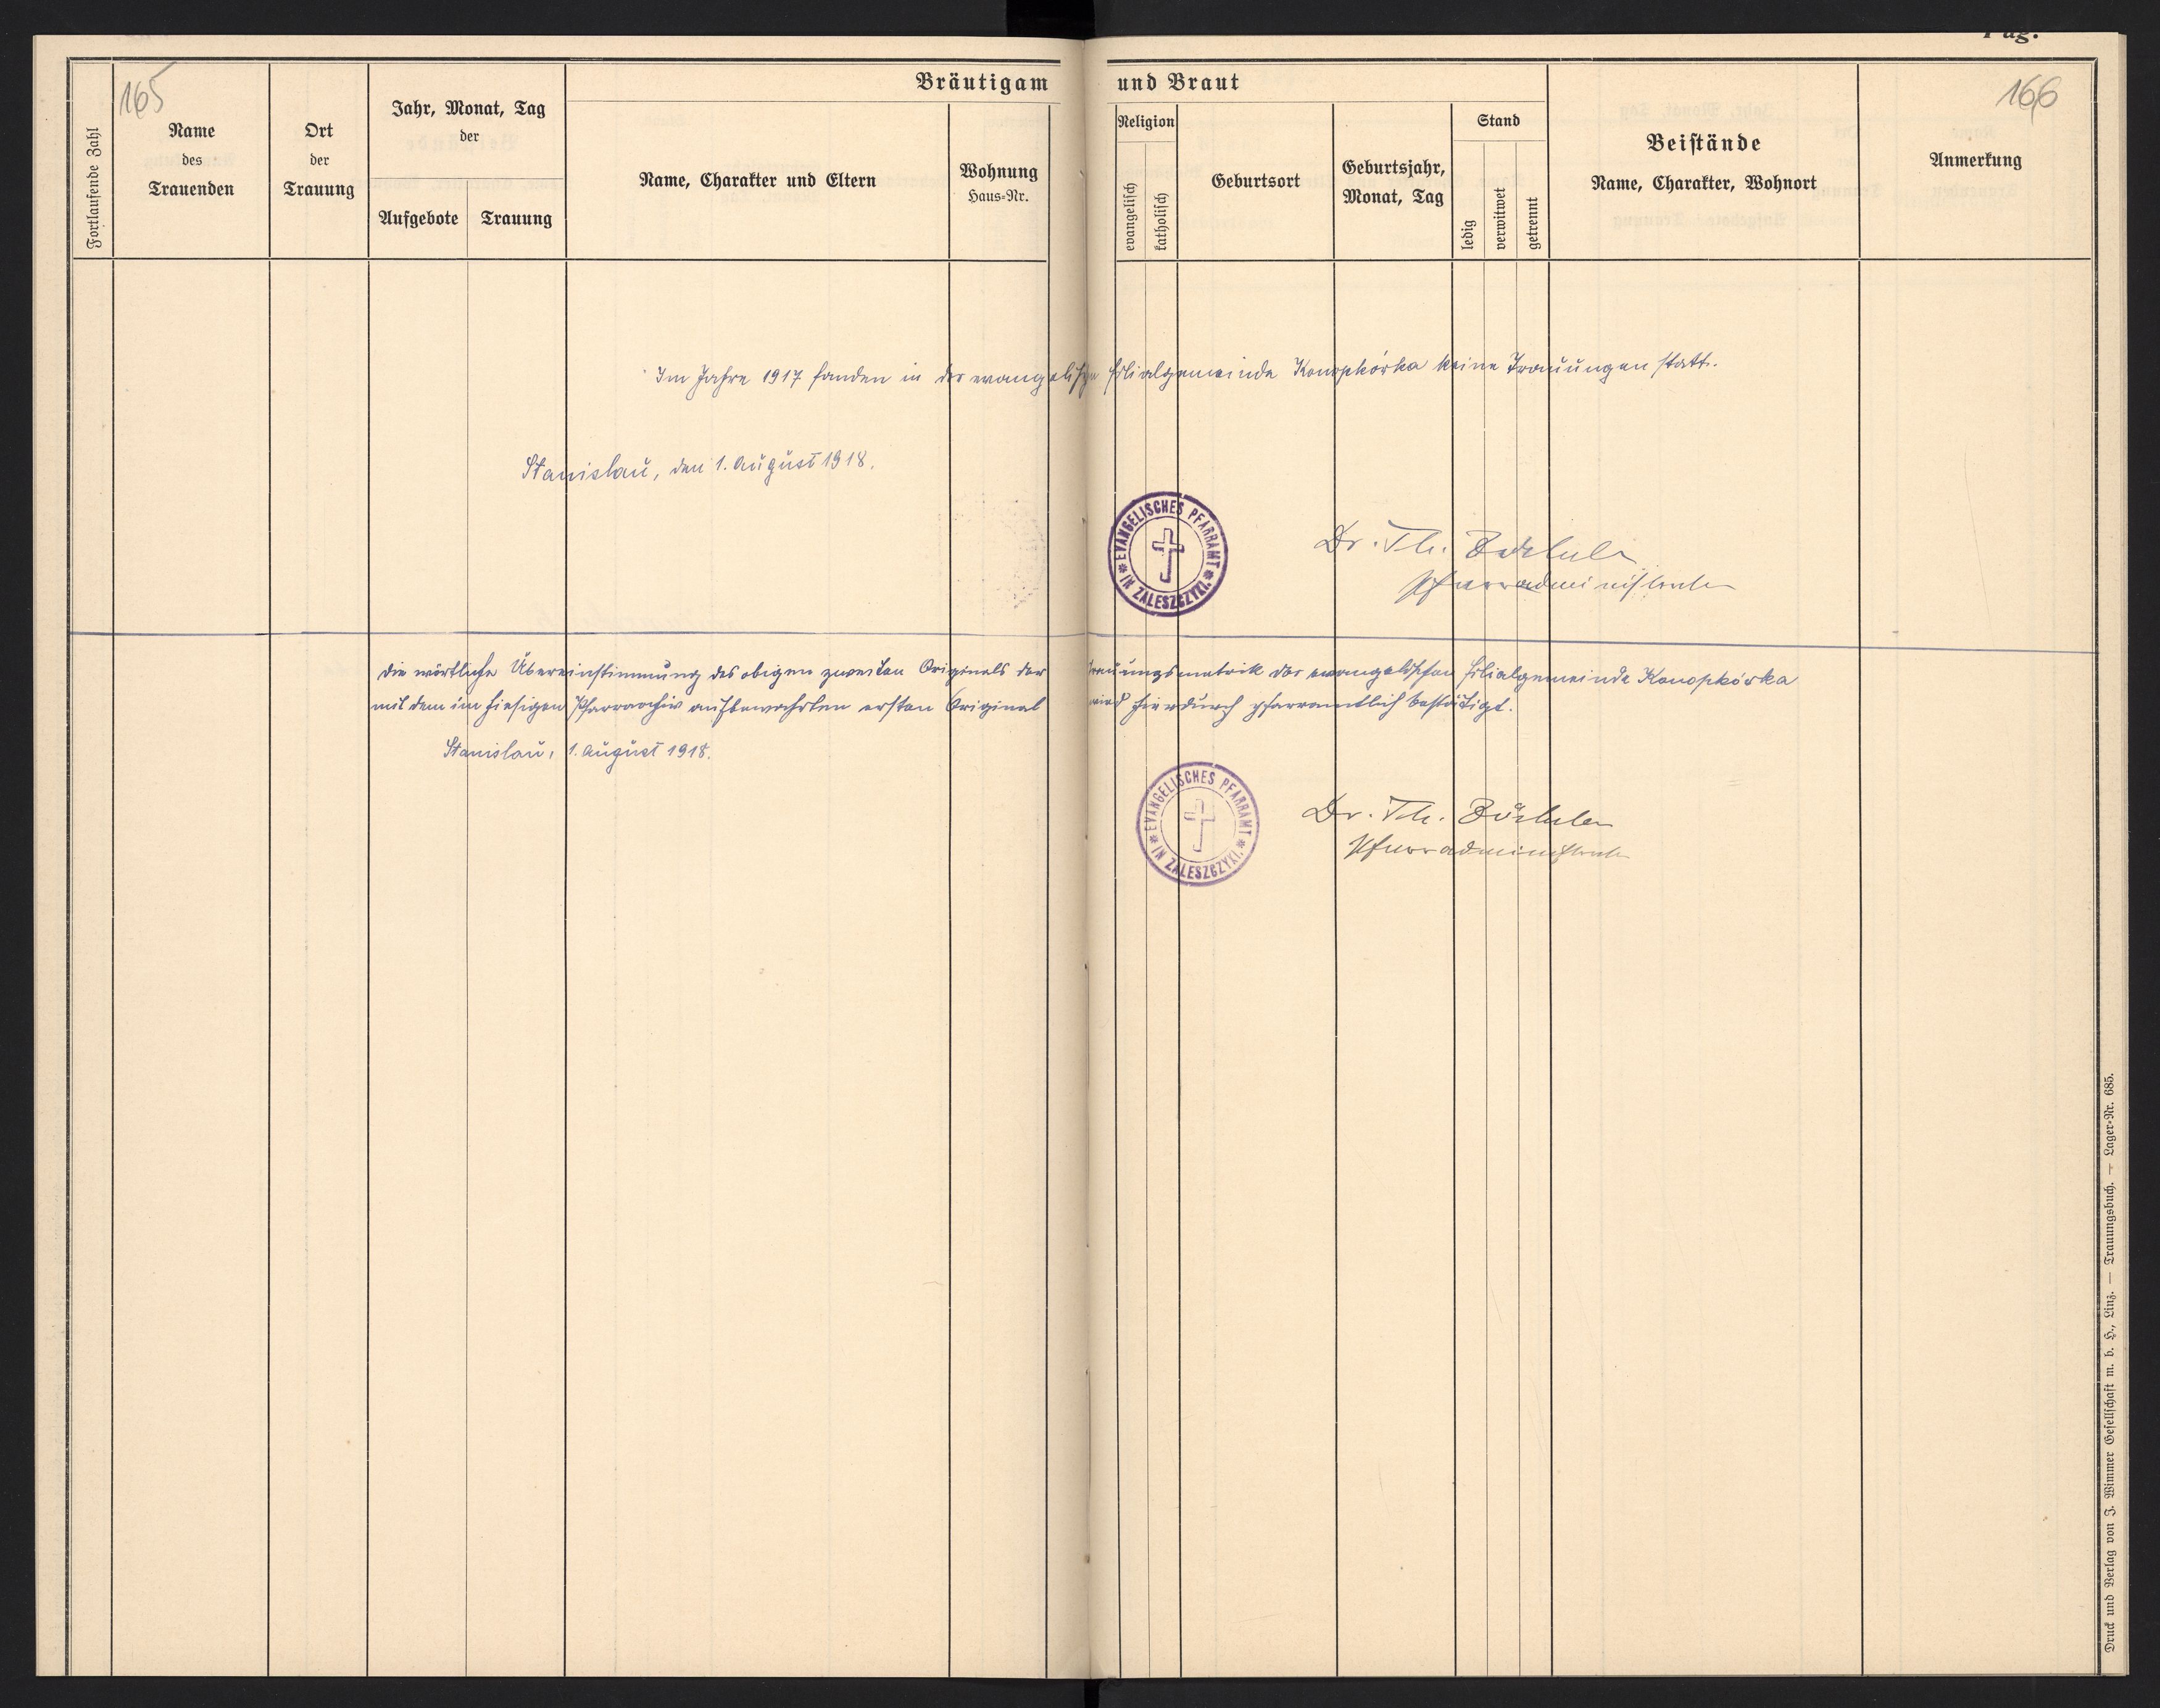 Pag.
165
166
Bräutigam und Braut
Fortlaufende Zahl
Name
des
Trauenden
Ort
der
Trauung
Jahr, Monat, Tag
der
Aufgebote
Trauung
Name, Charakter und Eltern
Wohnung
Haus-Nr.
Religion
evangelisch
katholisch
Geburtsort
Geburtsjahr,
Monat, Tag
Stand
ledig
verwitwet
getrennt
Beistände
Name, Charakter, Wohnort
Anmerkung
Im Jahre 1917 fanden in der evangelischen Filialgemeinde Konopkówka keine Trauungen statt.
Stanislau, den 1. August 1918.
EVANGELISCHES PFARRAMT
IN ZALESZCZYKI.
Dr. Th.
Pfarradministrator
Die wörtliche Übereinstimmung des obigen zweiten Originals der Trauungsmatrik der evangelischen Filialgemeinde Konopkówka
mit dem im hiesigen Pfarrarchiv aufbewahrten ersten Original wird hierdurch pfarramtlich bestätigt.
Stanislau, 1. August 1918.
EVANGELISCHES PFARRAMT
IN ZALESZCZYKI.
Dr. Th.
Pfarradministrator
Druck und Verlag von J. Wimmer Gesellschaft m. b. H., Linz. — Trauungsbuch. — Lager-Nr. 685.